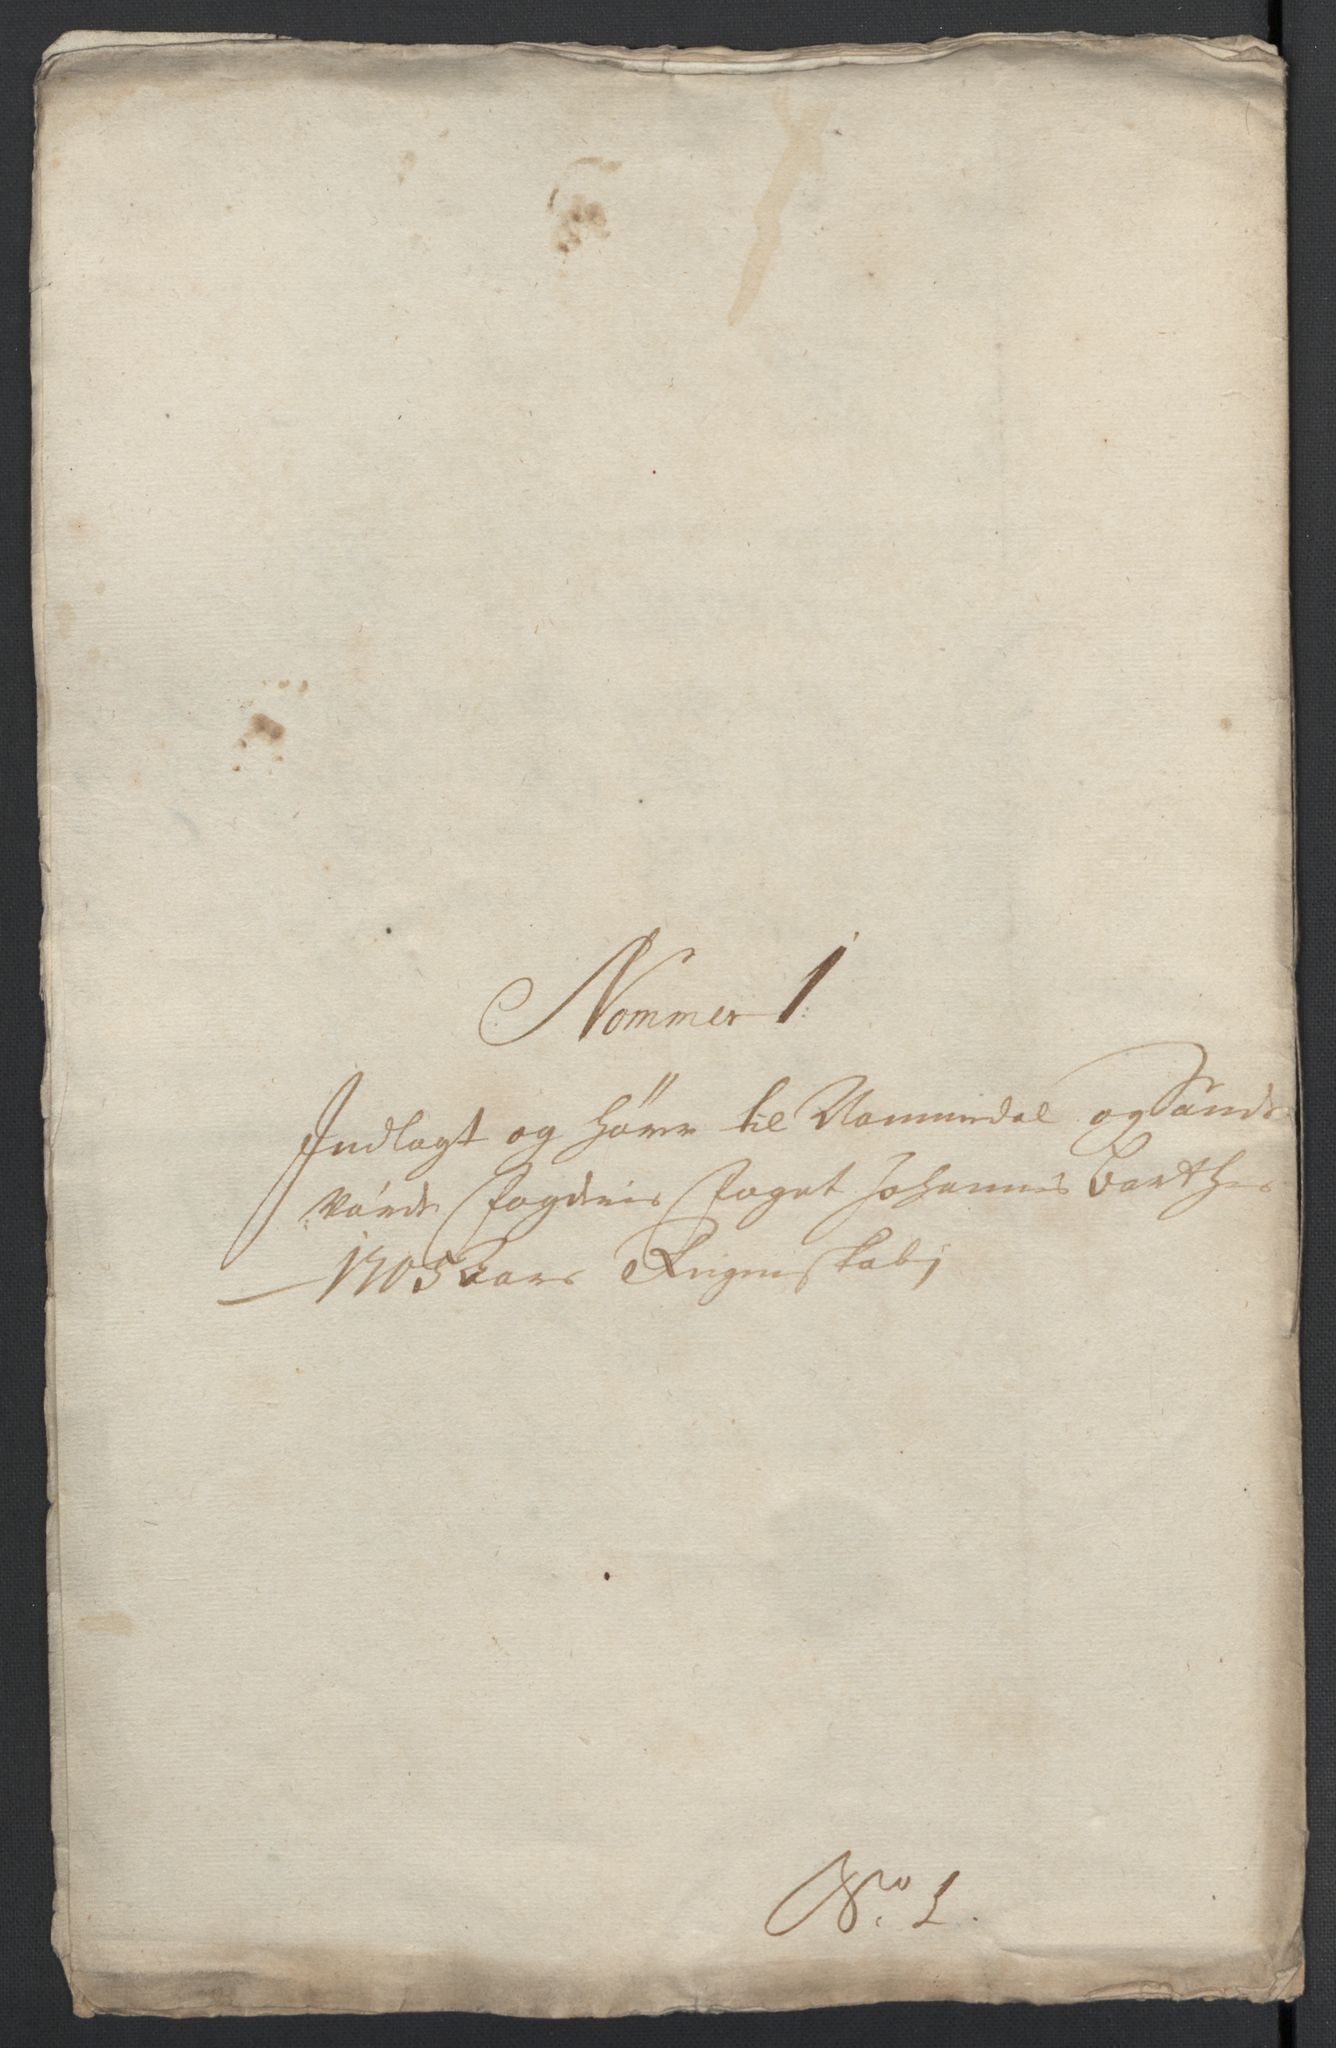 Nommer 1
Indlagt og hörer til Nommedal og Sand
værds fogderis foget Johannis Barthes
1705 Aars Regenskab,
No. 1.